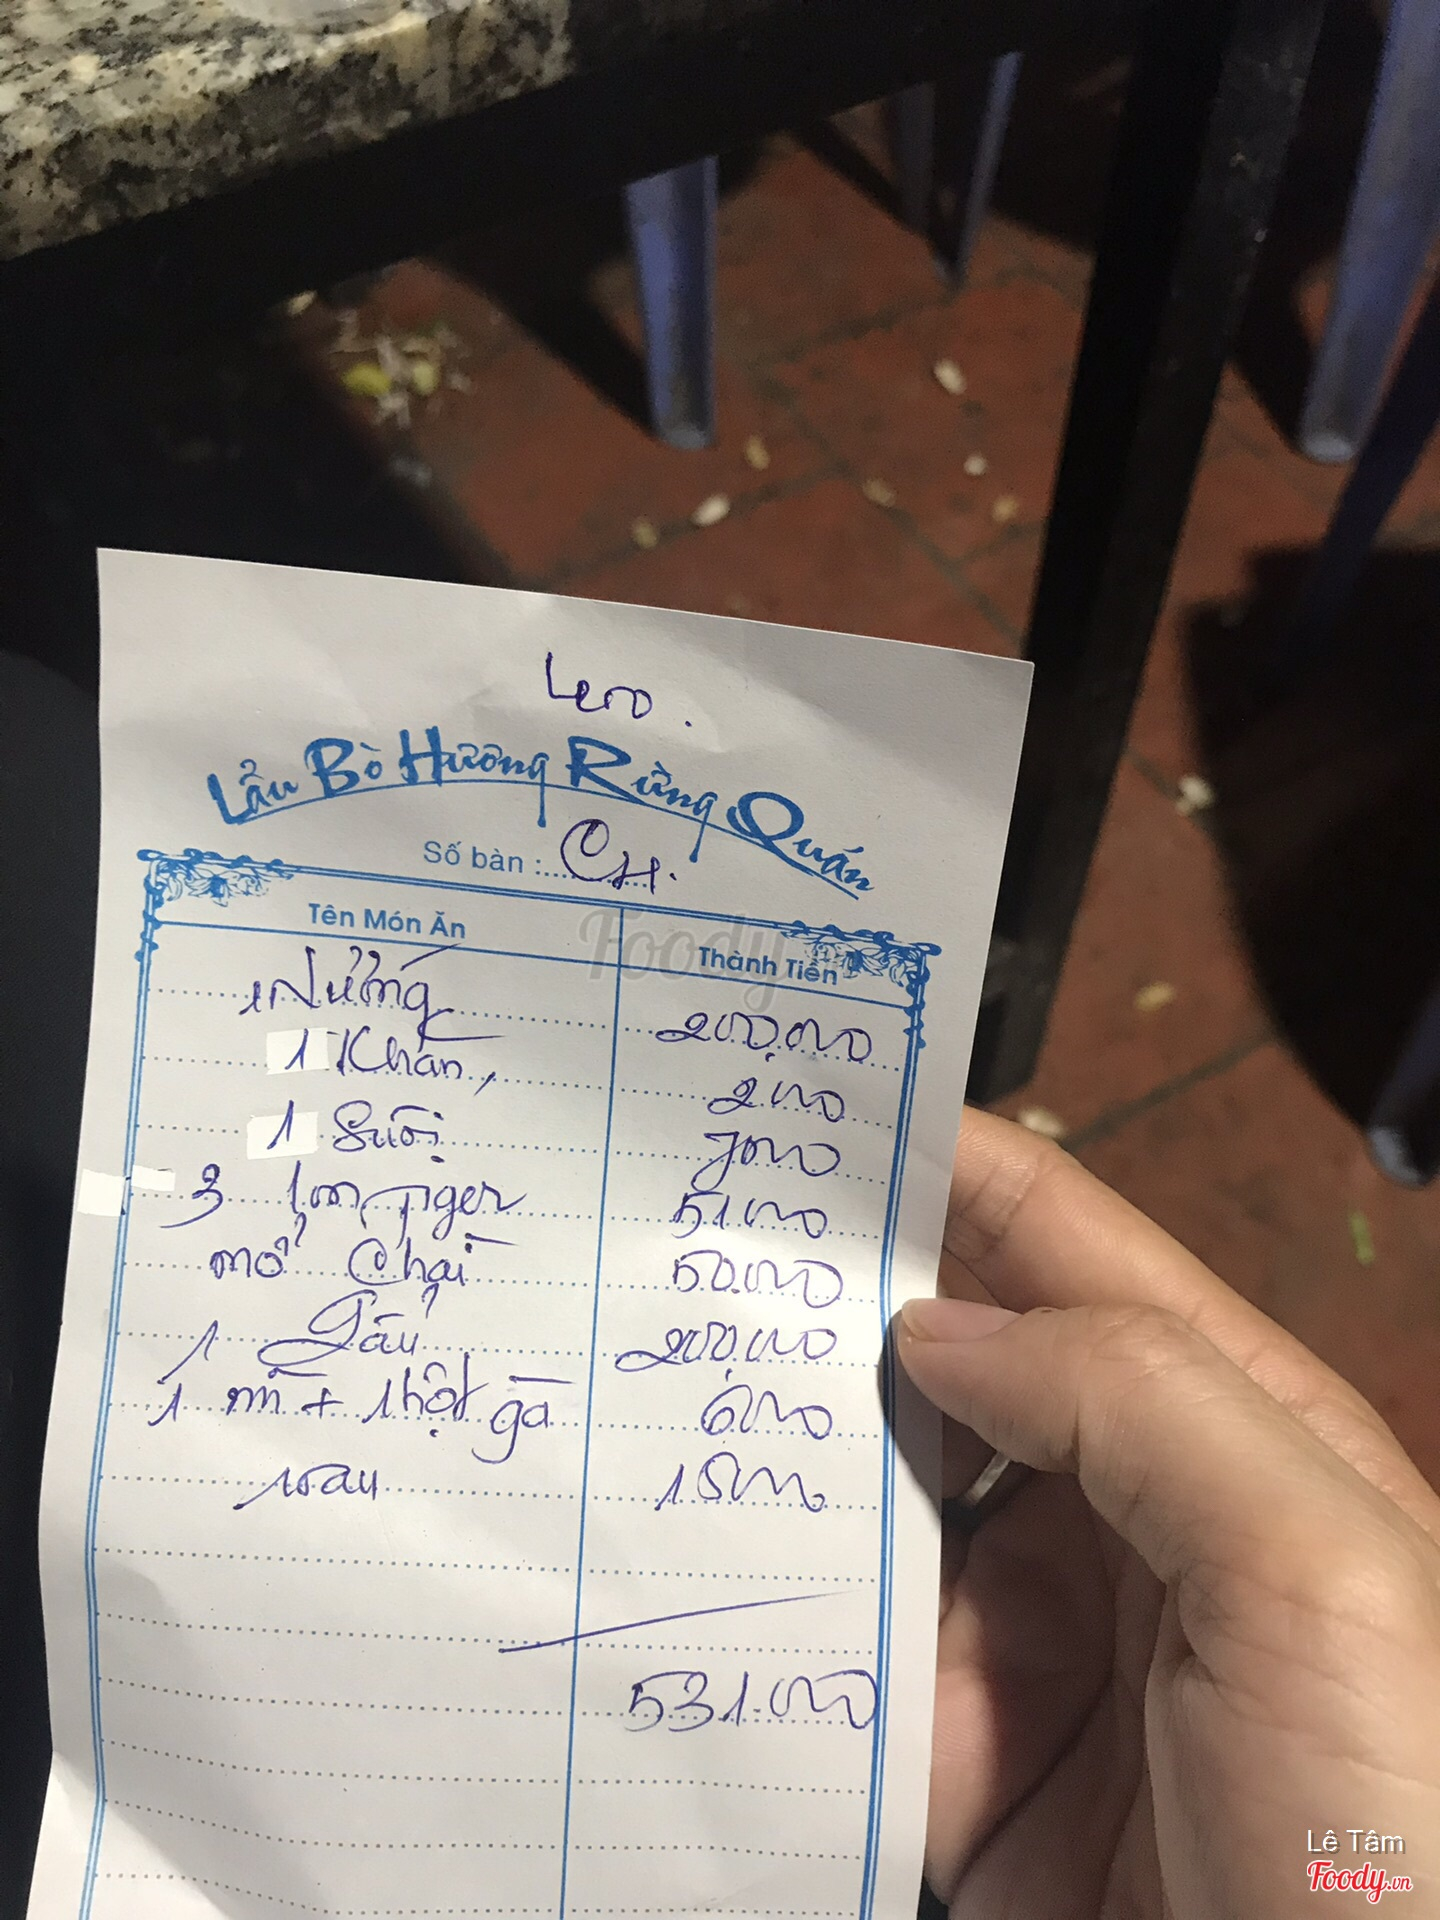 Lero.
Lẩu Bò Hương Rừng Quán
Số bàn : CH.
Tên Món Ăn Thành Tiền
1 Nướng 200,000
1 Khăn, 2000
1 Suối 7000
3 lon Tiger 51000
mổ Chài 50.000
1 Gấu 200,000
1 mì + 1 hột gà 6000
rau 15000
531.000
Foody
Lê Tâm
Foody.vn